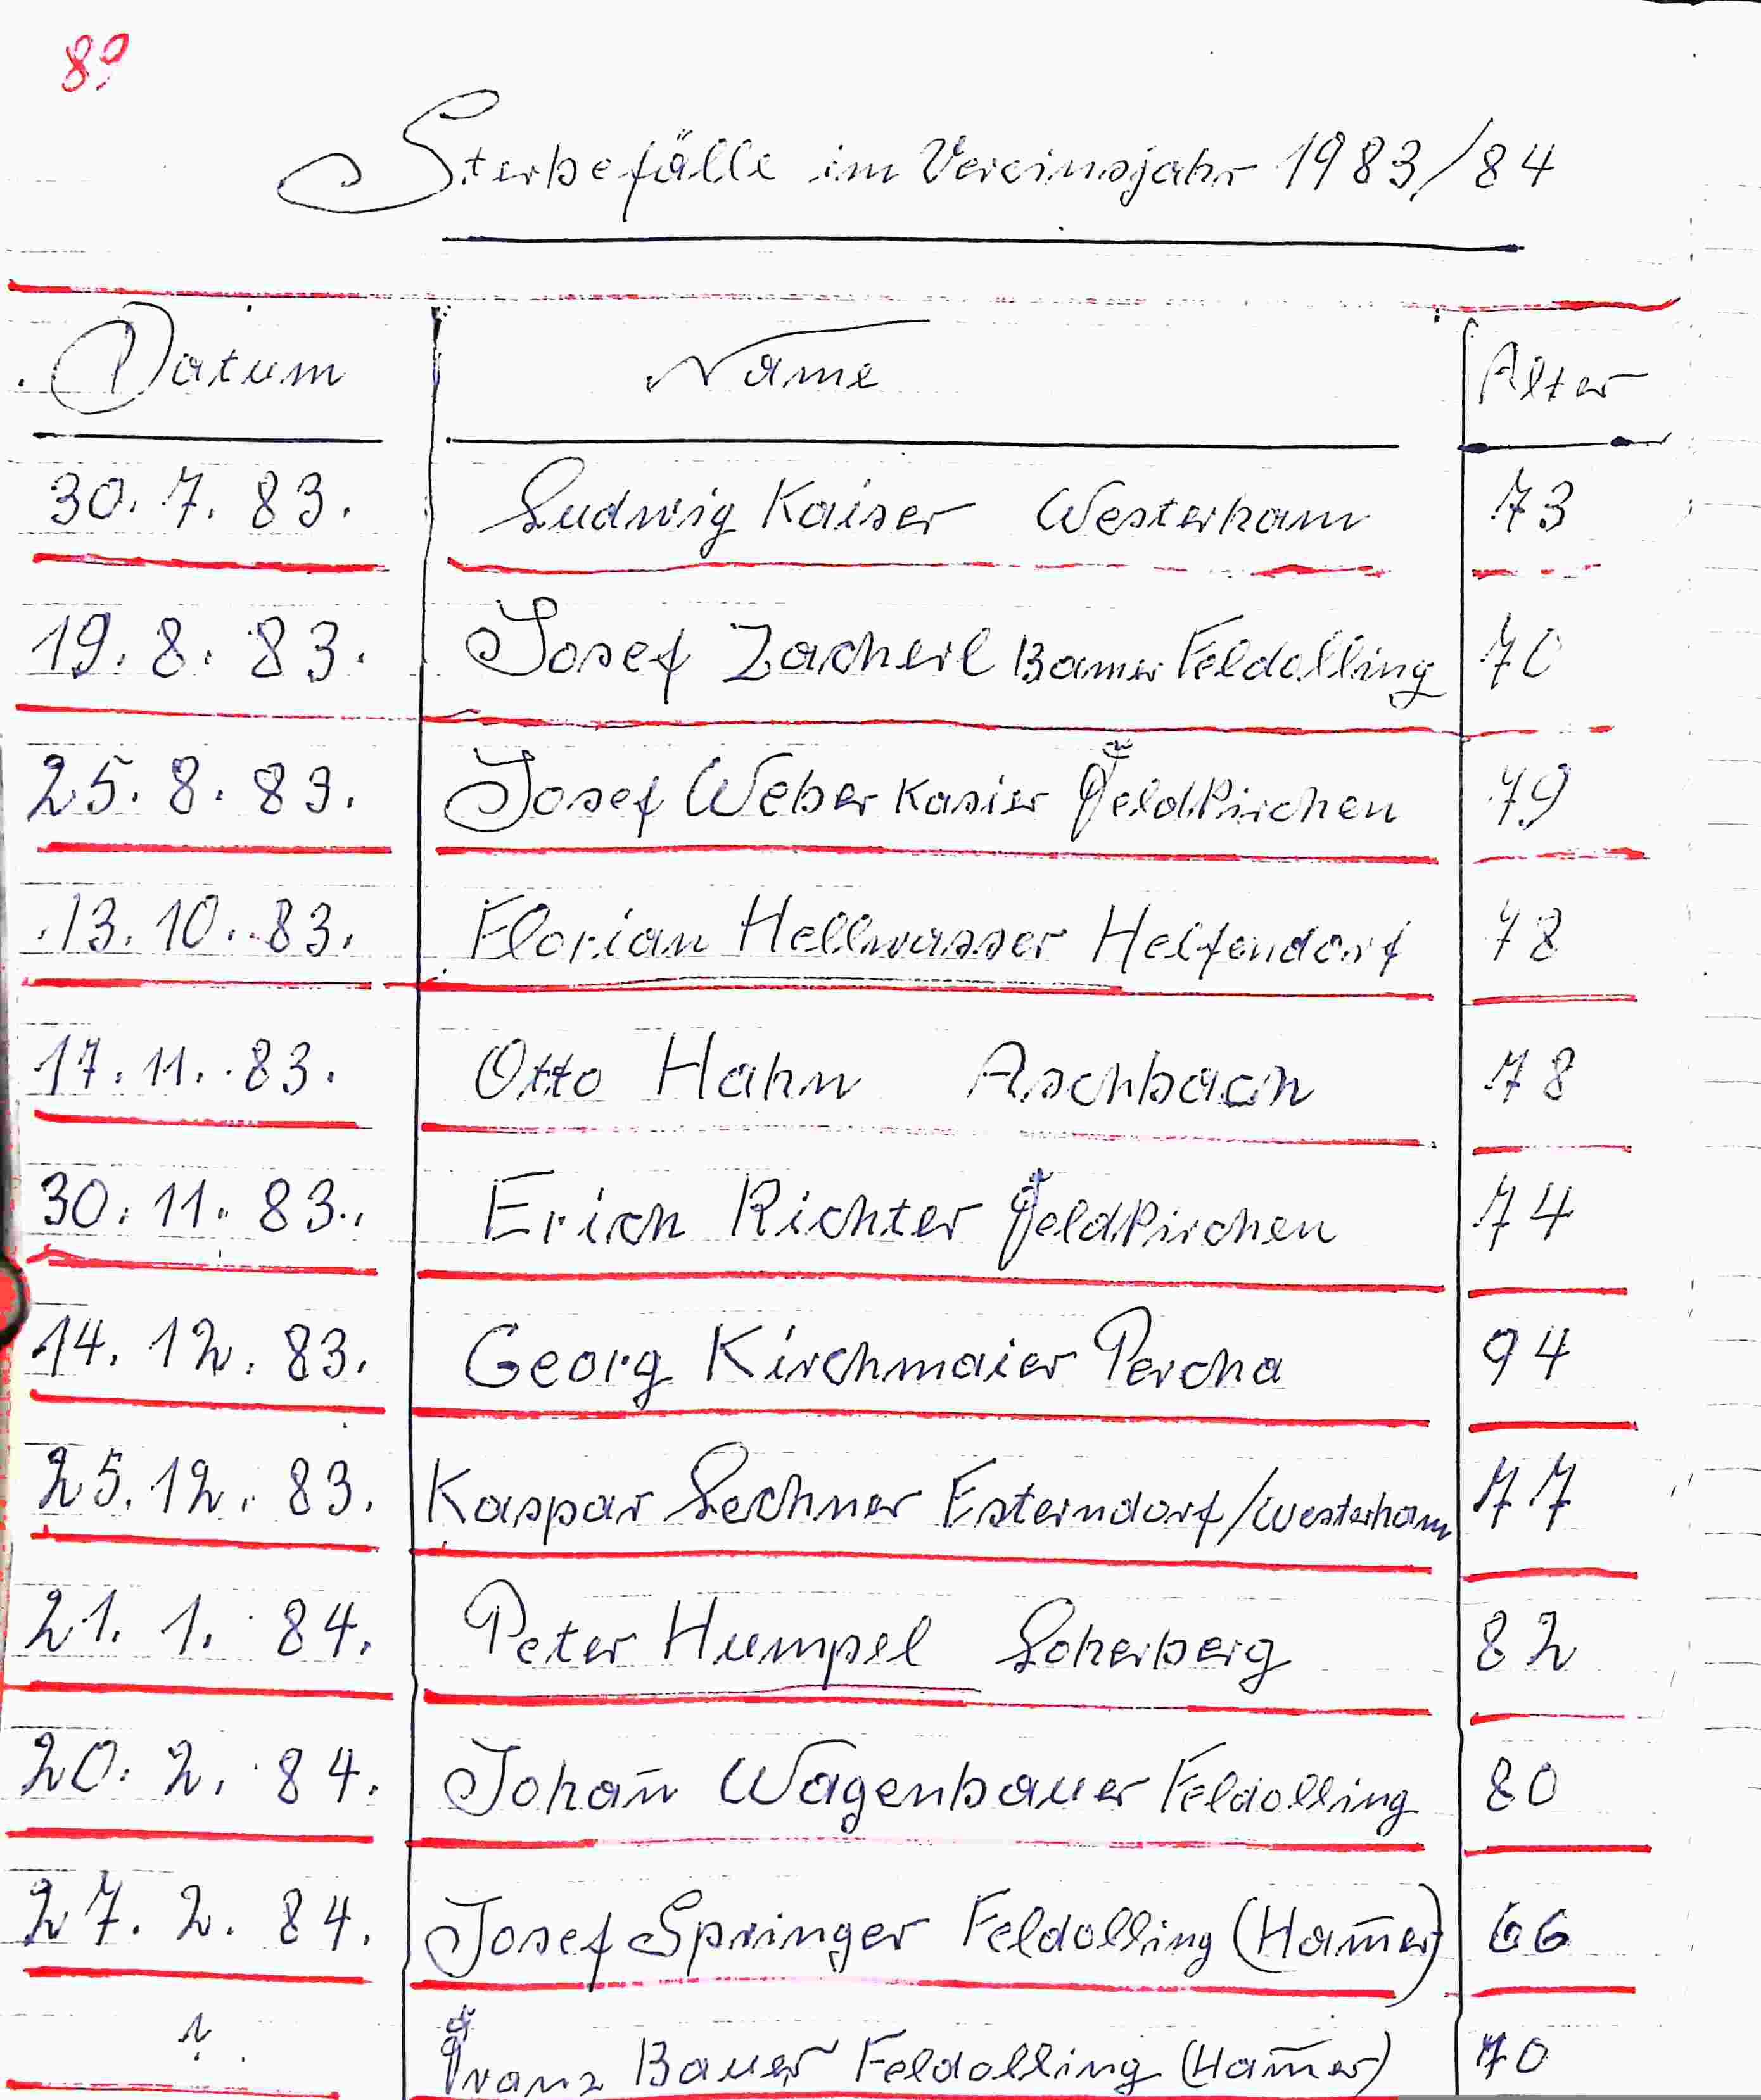 89
Sterbefälle im Vereinsjahr 1983/84
Datum Name Alter
30. 7. 83. Ludwig Kaiser Westerham 73
19. 8. 83. Josef Zacherl Feldolling 70
25. 8. 83. Josef Weber Kasier Feldkirchen 79
13. 10. 83. Florian Hellwasser Helfendorf 78
17. 11. 83. Otto Hahn Aschbach 78
30. 11. 83. Erich Richter Feldkirchen 74
14. 12. 83. Georg Kirchmaier Percha 94
25. 12. 83. Kaspar Lechner Esterndorf/Westerham 77
21. 1. 84. Peter Humpel Loherberg 82
20. 2. 84. Johañ Wagenbauer Feldolling 80
27. 2. 84. Josef Springer Feldolling (Ham̄er) 66
Franz Bauer Feldolling (Ham̄er) 70